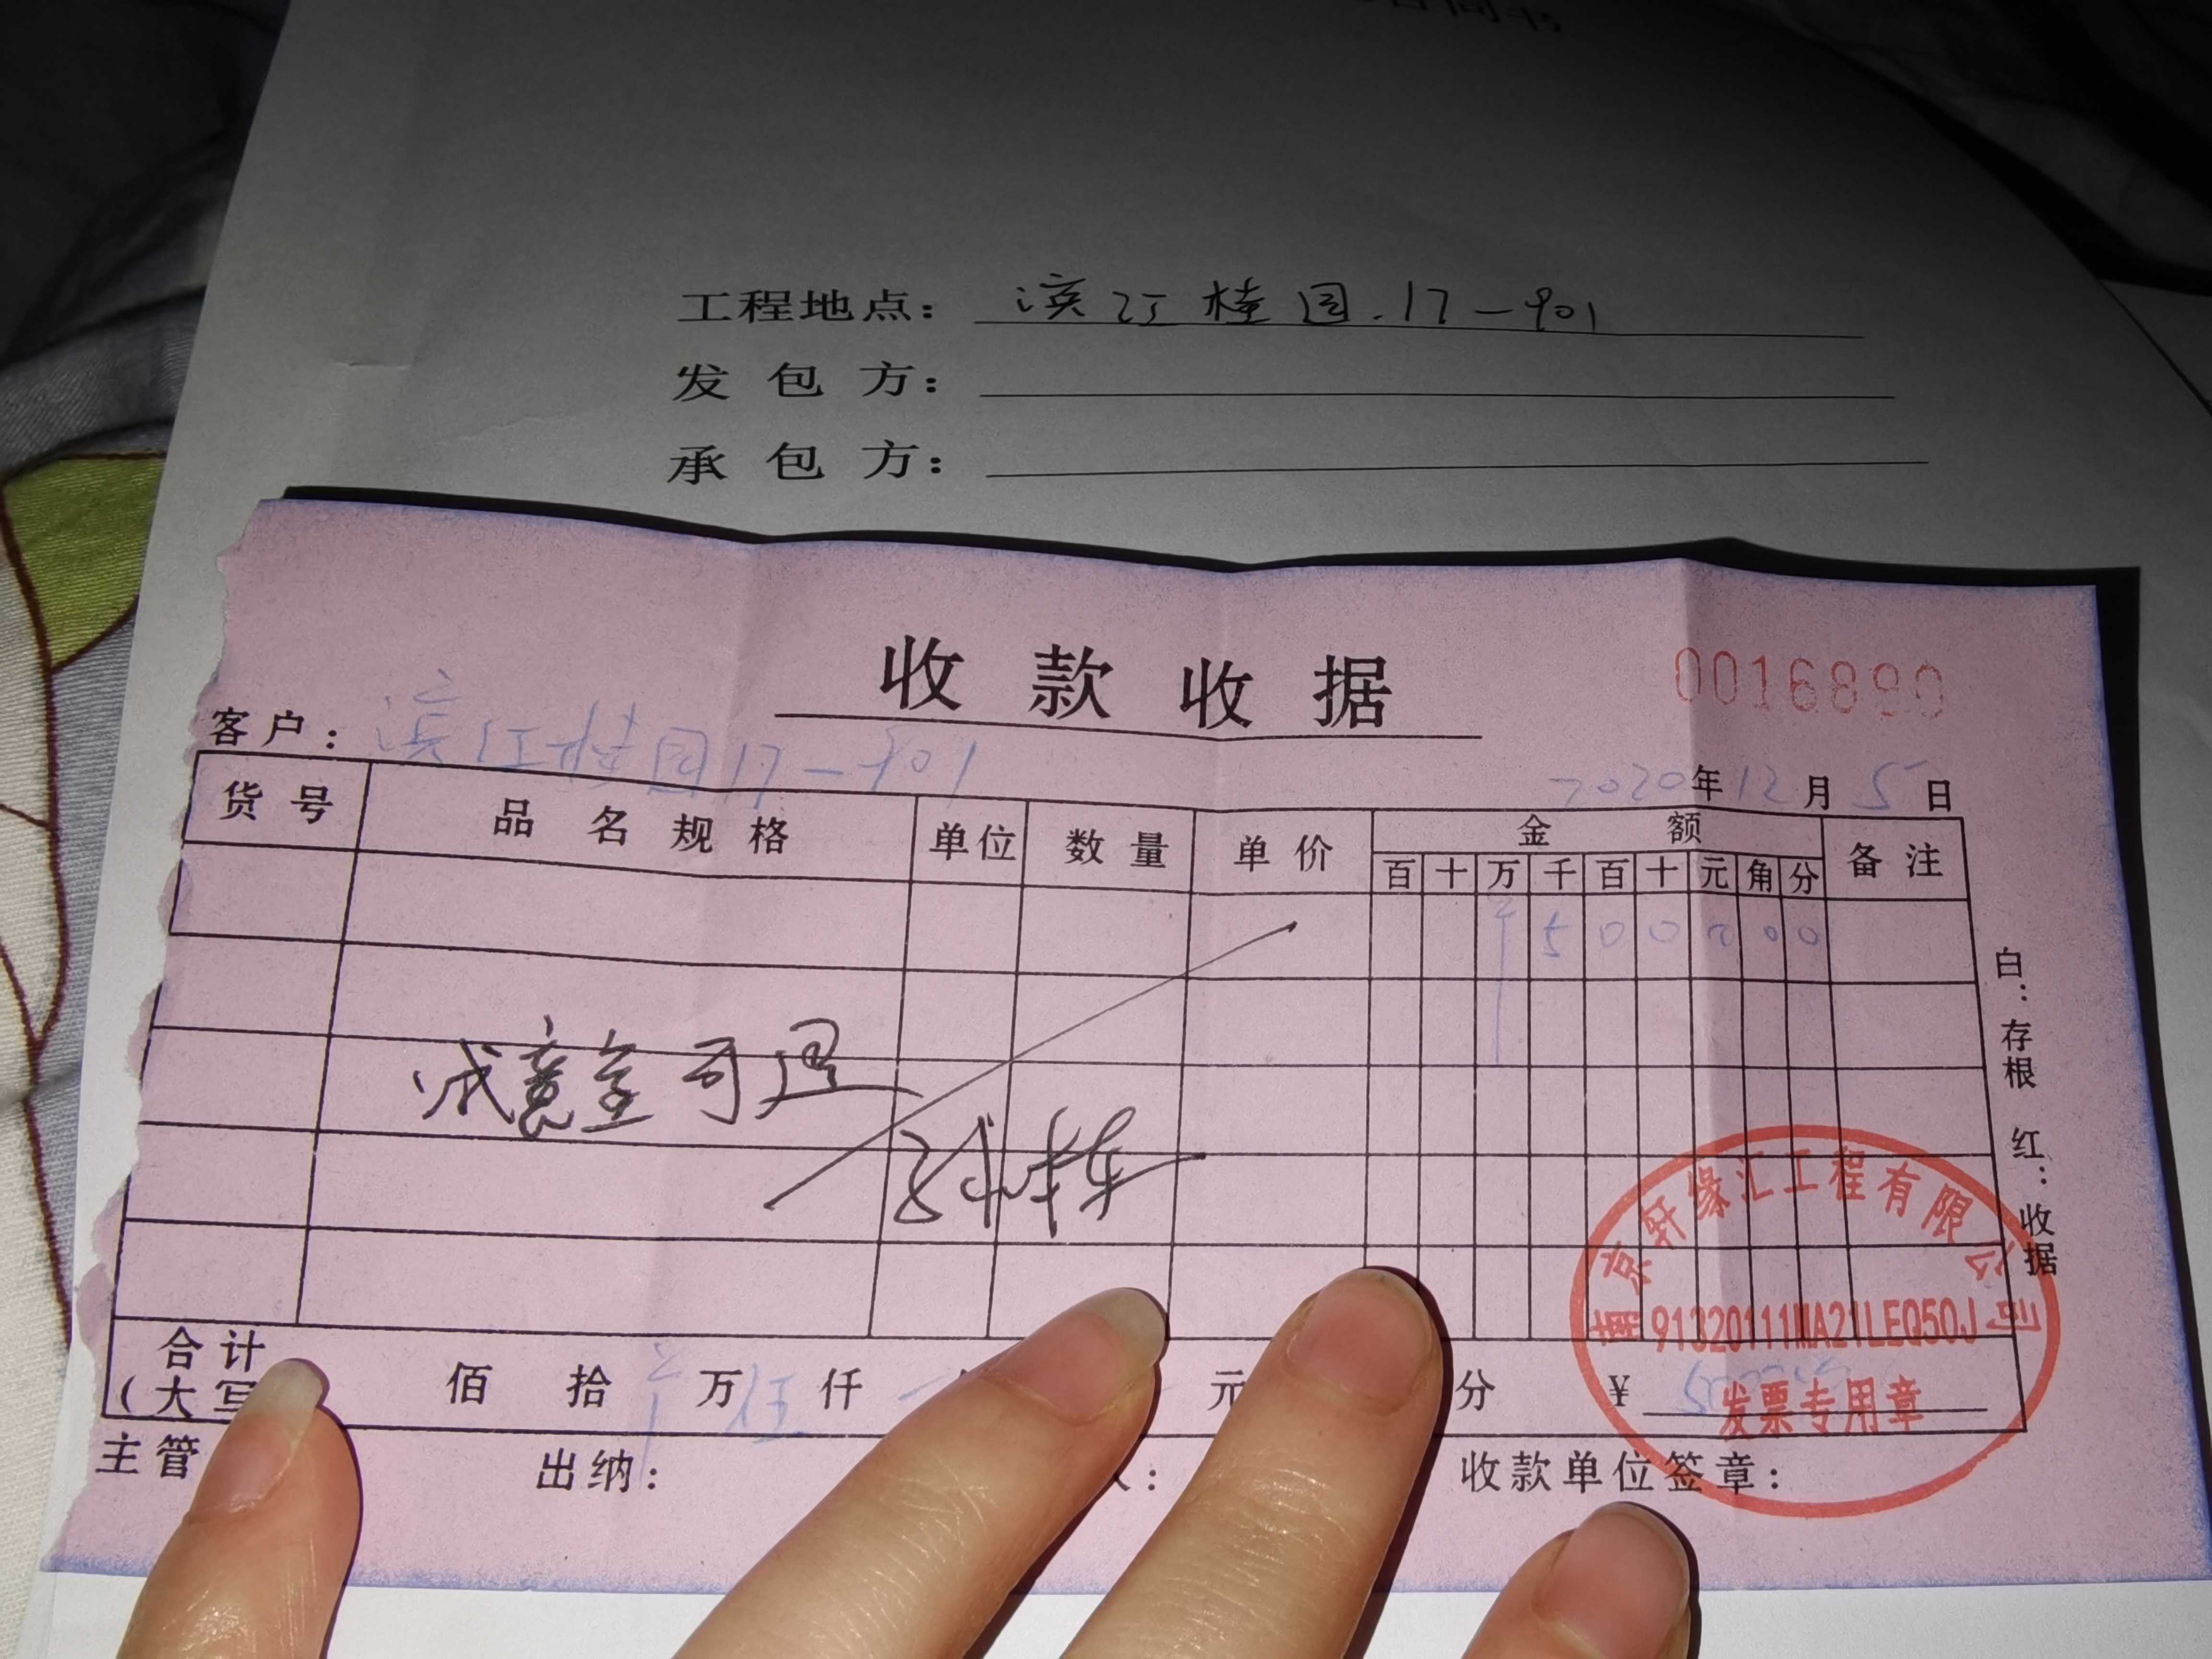 合同书
工程地点： 滨江桂园.17-901
发 包 方：
承 包 方：
收 款 收 据
0016890
客户： 滨江桂园17-901
2020年12月5日
货号 品名规格 单位 数量 单价 金额 备注
百 十 万 千 百 十 元 角 分
¥ 5 0 0 0 0 0
诚意金可退
合计
(大写
佰 拾 万 伍 仟 元 分 ¥ 5000
主管 出纳： 人： 收款单位签章：
白：存根 红：收据
南京轩缘汇工程有限公司
91320111MA21LEQ50J
发票专用章